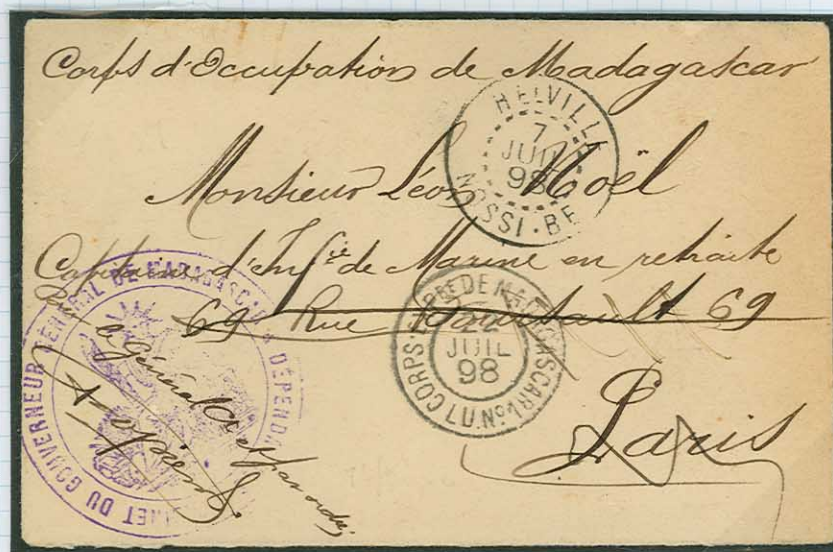 Corps d'Occupation de Madagascar
HELVILLE
7
JUIL
98
NOSSI-BE
Monsieur Léon Noël
Capitaine d'Infie de Marine en retraite
69 Rue 69
Paris
CORPS DE MADAGASCAR
JUIL
98
CABINET DU GOUVERNEUR GÉNÉRAL DE MADAGASCAR & DÉPENDA
le général et par ordre